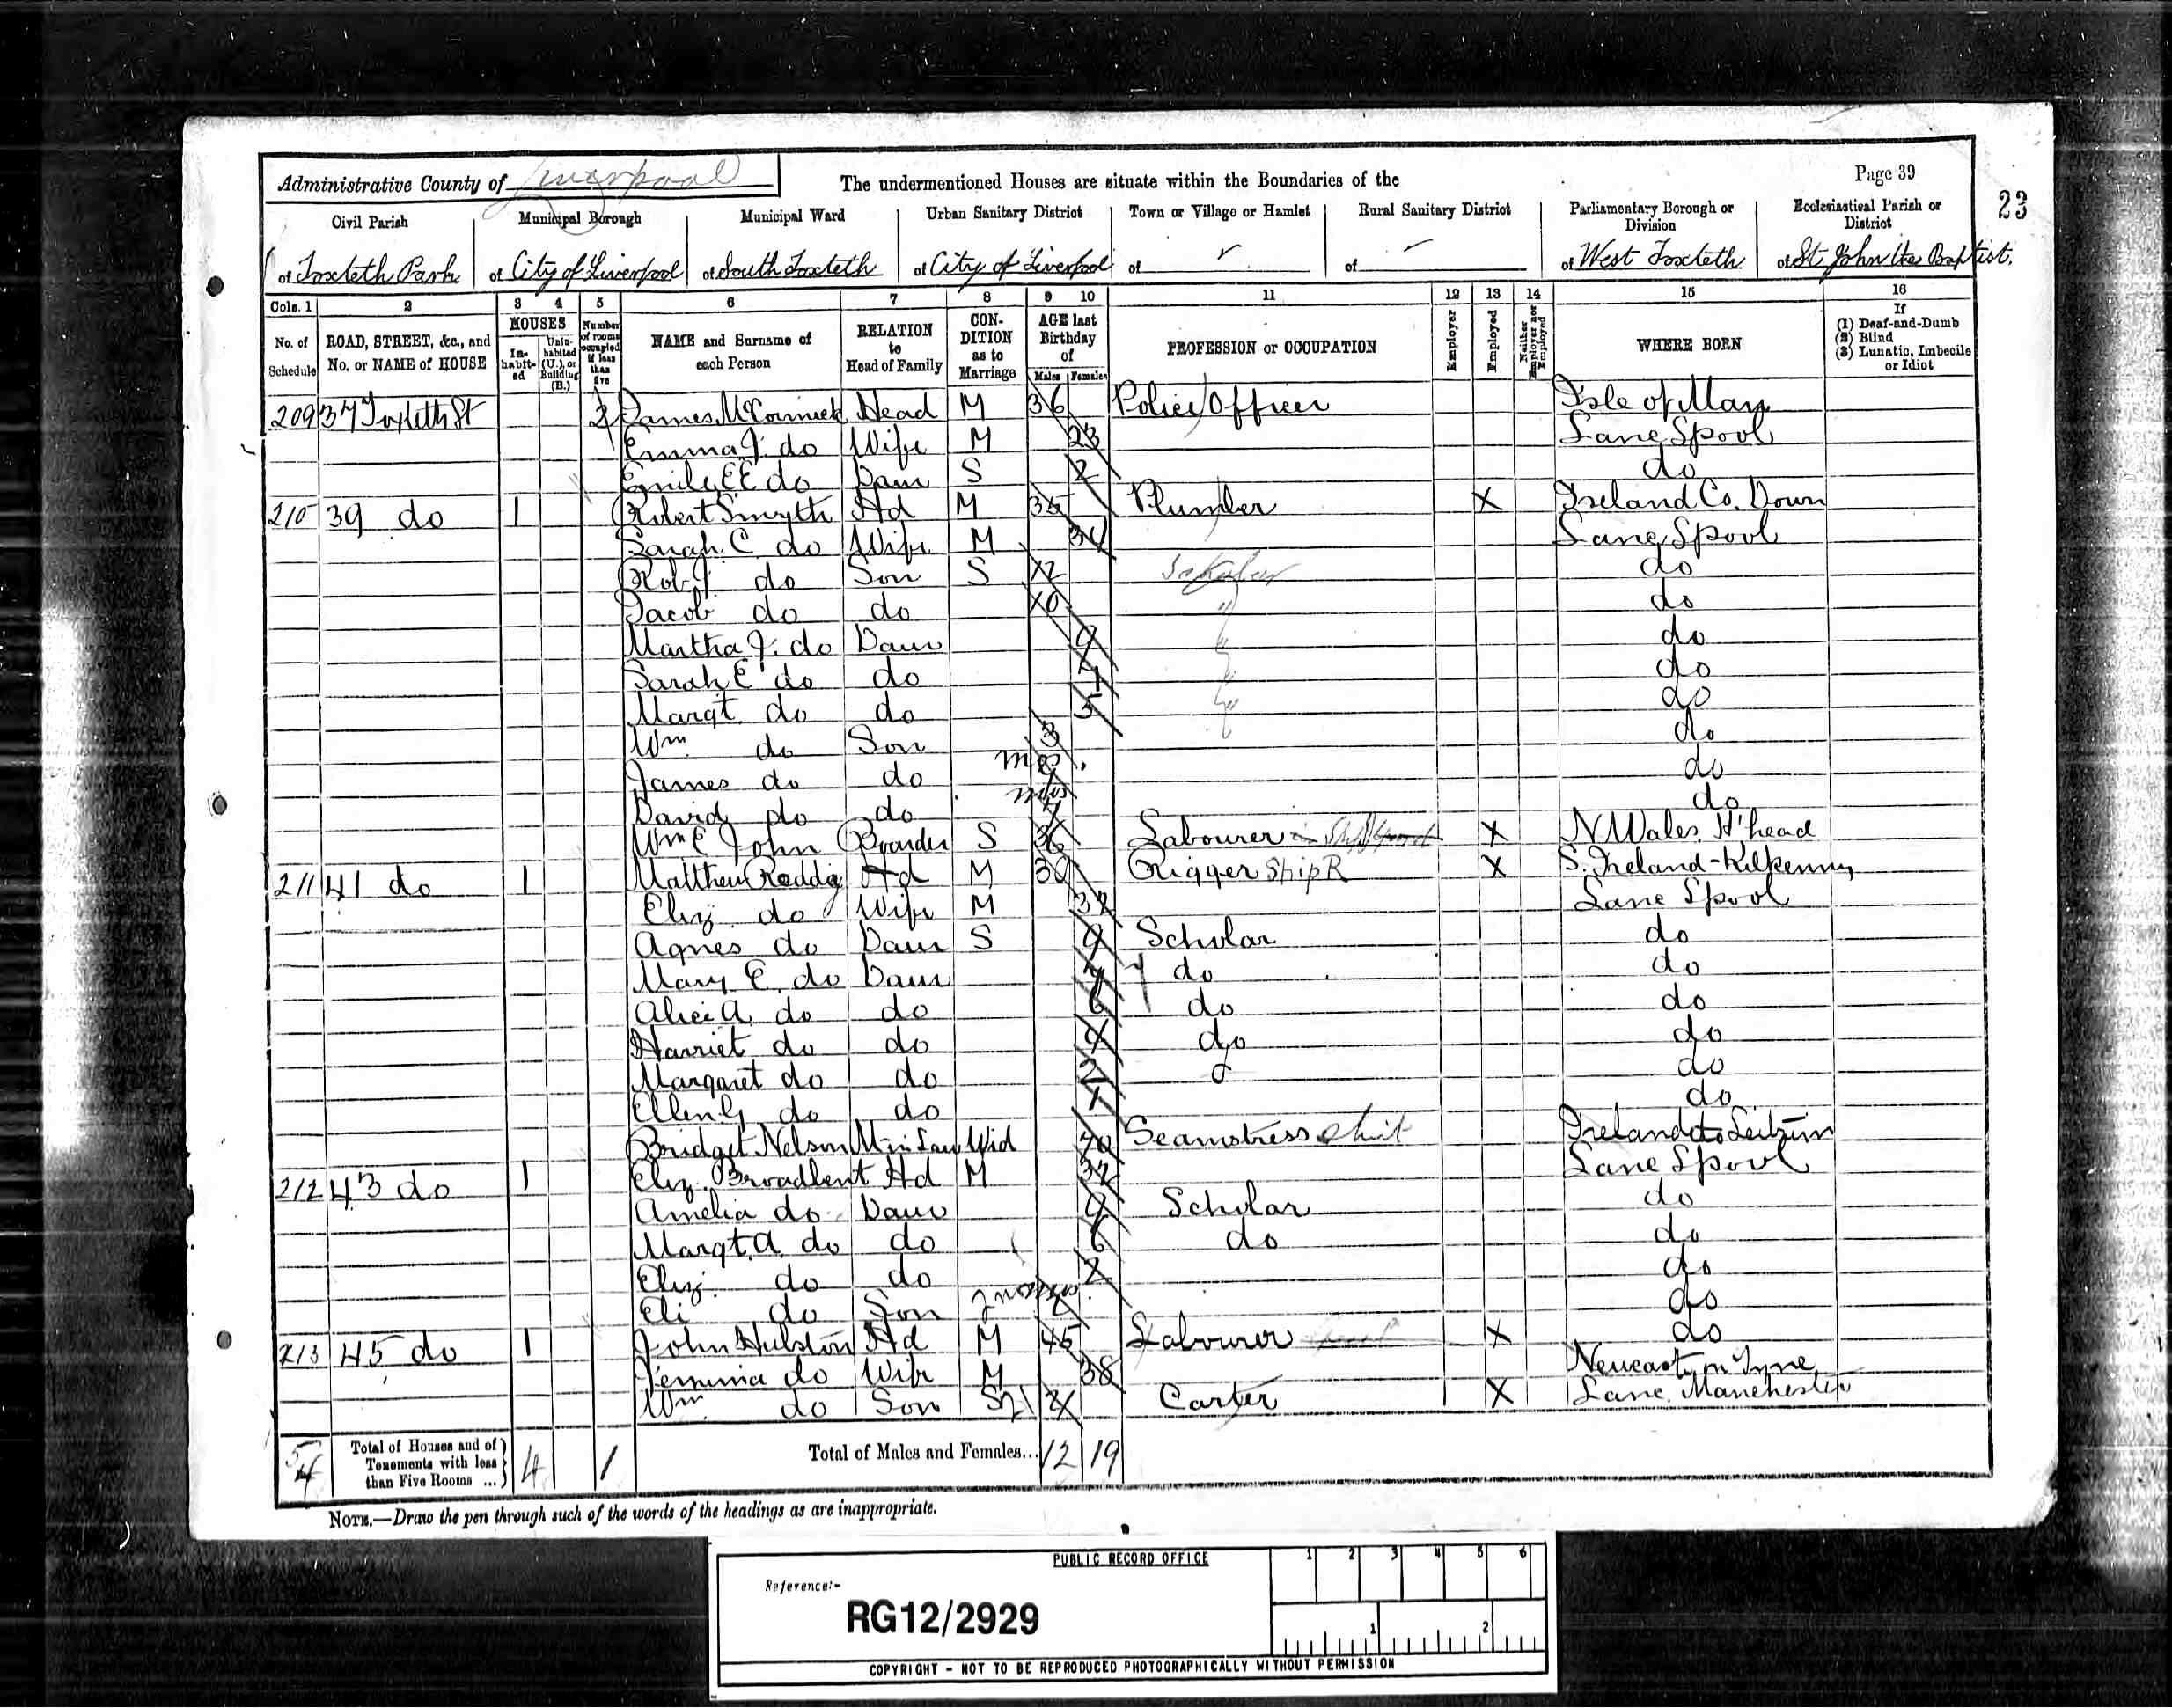 Page 39
23
Administrative County of Liverpool
The undermentioned Houses are situate within the Boundaries of the
Civil Parish | Municipal Borough | Municipal Ward | Urban Sanitary District | Town or Village or Hamlet | Rural Sanitary District | Parliamentary Borough or Division | Ecclesiastical Parish or District
of Toxteth Park | of City of Liverpool | of South Toxteth | of City of Liverpool | of | of | of West Toxteth | of St John the Baptist.
Cols. 1 | 2 | 3 | 4 | 5 | 6 | 7 | 8 | 9 | 10 | 11 | 12 | 13 | 14 | 15 | 16
No. of Schedule | ROAD, STREET, &c., and No. or NAME of HOUSE | HOUSES In-habit-ed | Unin-habited (U.), or Building (B.) | Number of rooms occupied if less than five | NAME and Surname of each Person | RELATION to Head of Family | CON-DITION as to Marriage | AGE last Birthday of Males | Females | PROFESSION or OCCUPATION | Employer | Employed | Neither Employer nor Employed | WHERE BORN | If (1) Deaf-and-Dumb (2) Blind (3) Lunatic, Imbecile or Idiot
209 37 Toxteth St 2 James McCormick Head M 36 Police Officer Isle of Man
Emma J. do Wife M 23 Lanc Lpool
Emily E E do Daur S 2 do
210 39 do 1 Robert Smyth Hd M 35 Plumber X Ireland Co. Down
Sarah C. do Wife M 34 Lanc Lpool
Rob J. do Son S 12 Scholar do
Jacob do do 10 " do
Martha J. do Daur 9 " do
Sarah E do do 7 " do
Margt. do do 5 " do
Wm. do Son 3 do
James do do mos do
David do do mos do
Wm E John Boarder S 36 Labourer X N Wales H'head
211 41 do 1 Matthew Roddy Hd M 30 Rigger Ship R X S. Ireland - Kilkenny
Eliz do Wife M 32 Lanc Lpool
Agnes do Daur S 9 Scholar do
Mary E. do Daur 7 do do
Alice A. do do 6 do do
Harriet do do 4 do do
Margaret do do 2 do
Ellen G do do 1 do
Bridget Nelson M in Law Wid 70 Seamstress Shirt Ireland Leitrim
212 43 do 1 Eliz. Broadbent Hd M 32 Lanc Lpool
Amelia do Daur 9 Scholar do
Margt. A. do do 6 do do
Eliz. do do 2 do
Eli do Son 2 mos. do
213 45 do 1 John Hulston Hd M 45 Labourer X do
Jemima do Wife M 38 Newcast on Tyne
Wm. do Son S 21 Carter X Lanc. Manchester
Total of Houses and of Tenements with less than Five Rooms ... 4 1 Total of Males and Females... 12 19
NOTE.—Draw the pen through such of the words of the headings as are inappropriate.
PUBLIC RECORD OFFICE
1 2 3 4 5 6
Reference:-
RG12/2929
1 2
COPYRIGHT - NOT TO BE REPRODUCED PHOTOGRAPHICALLY WITHOUT PERMISSION